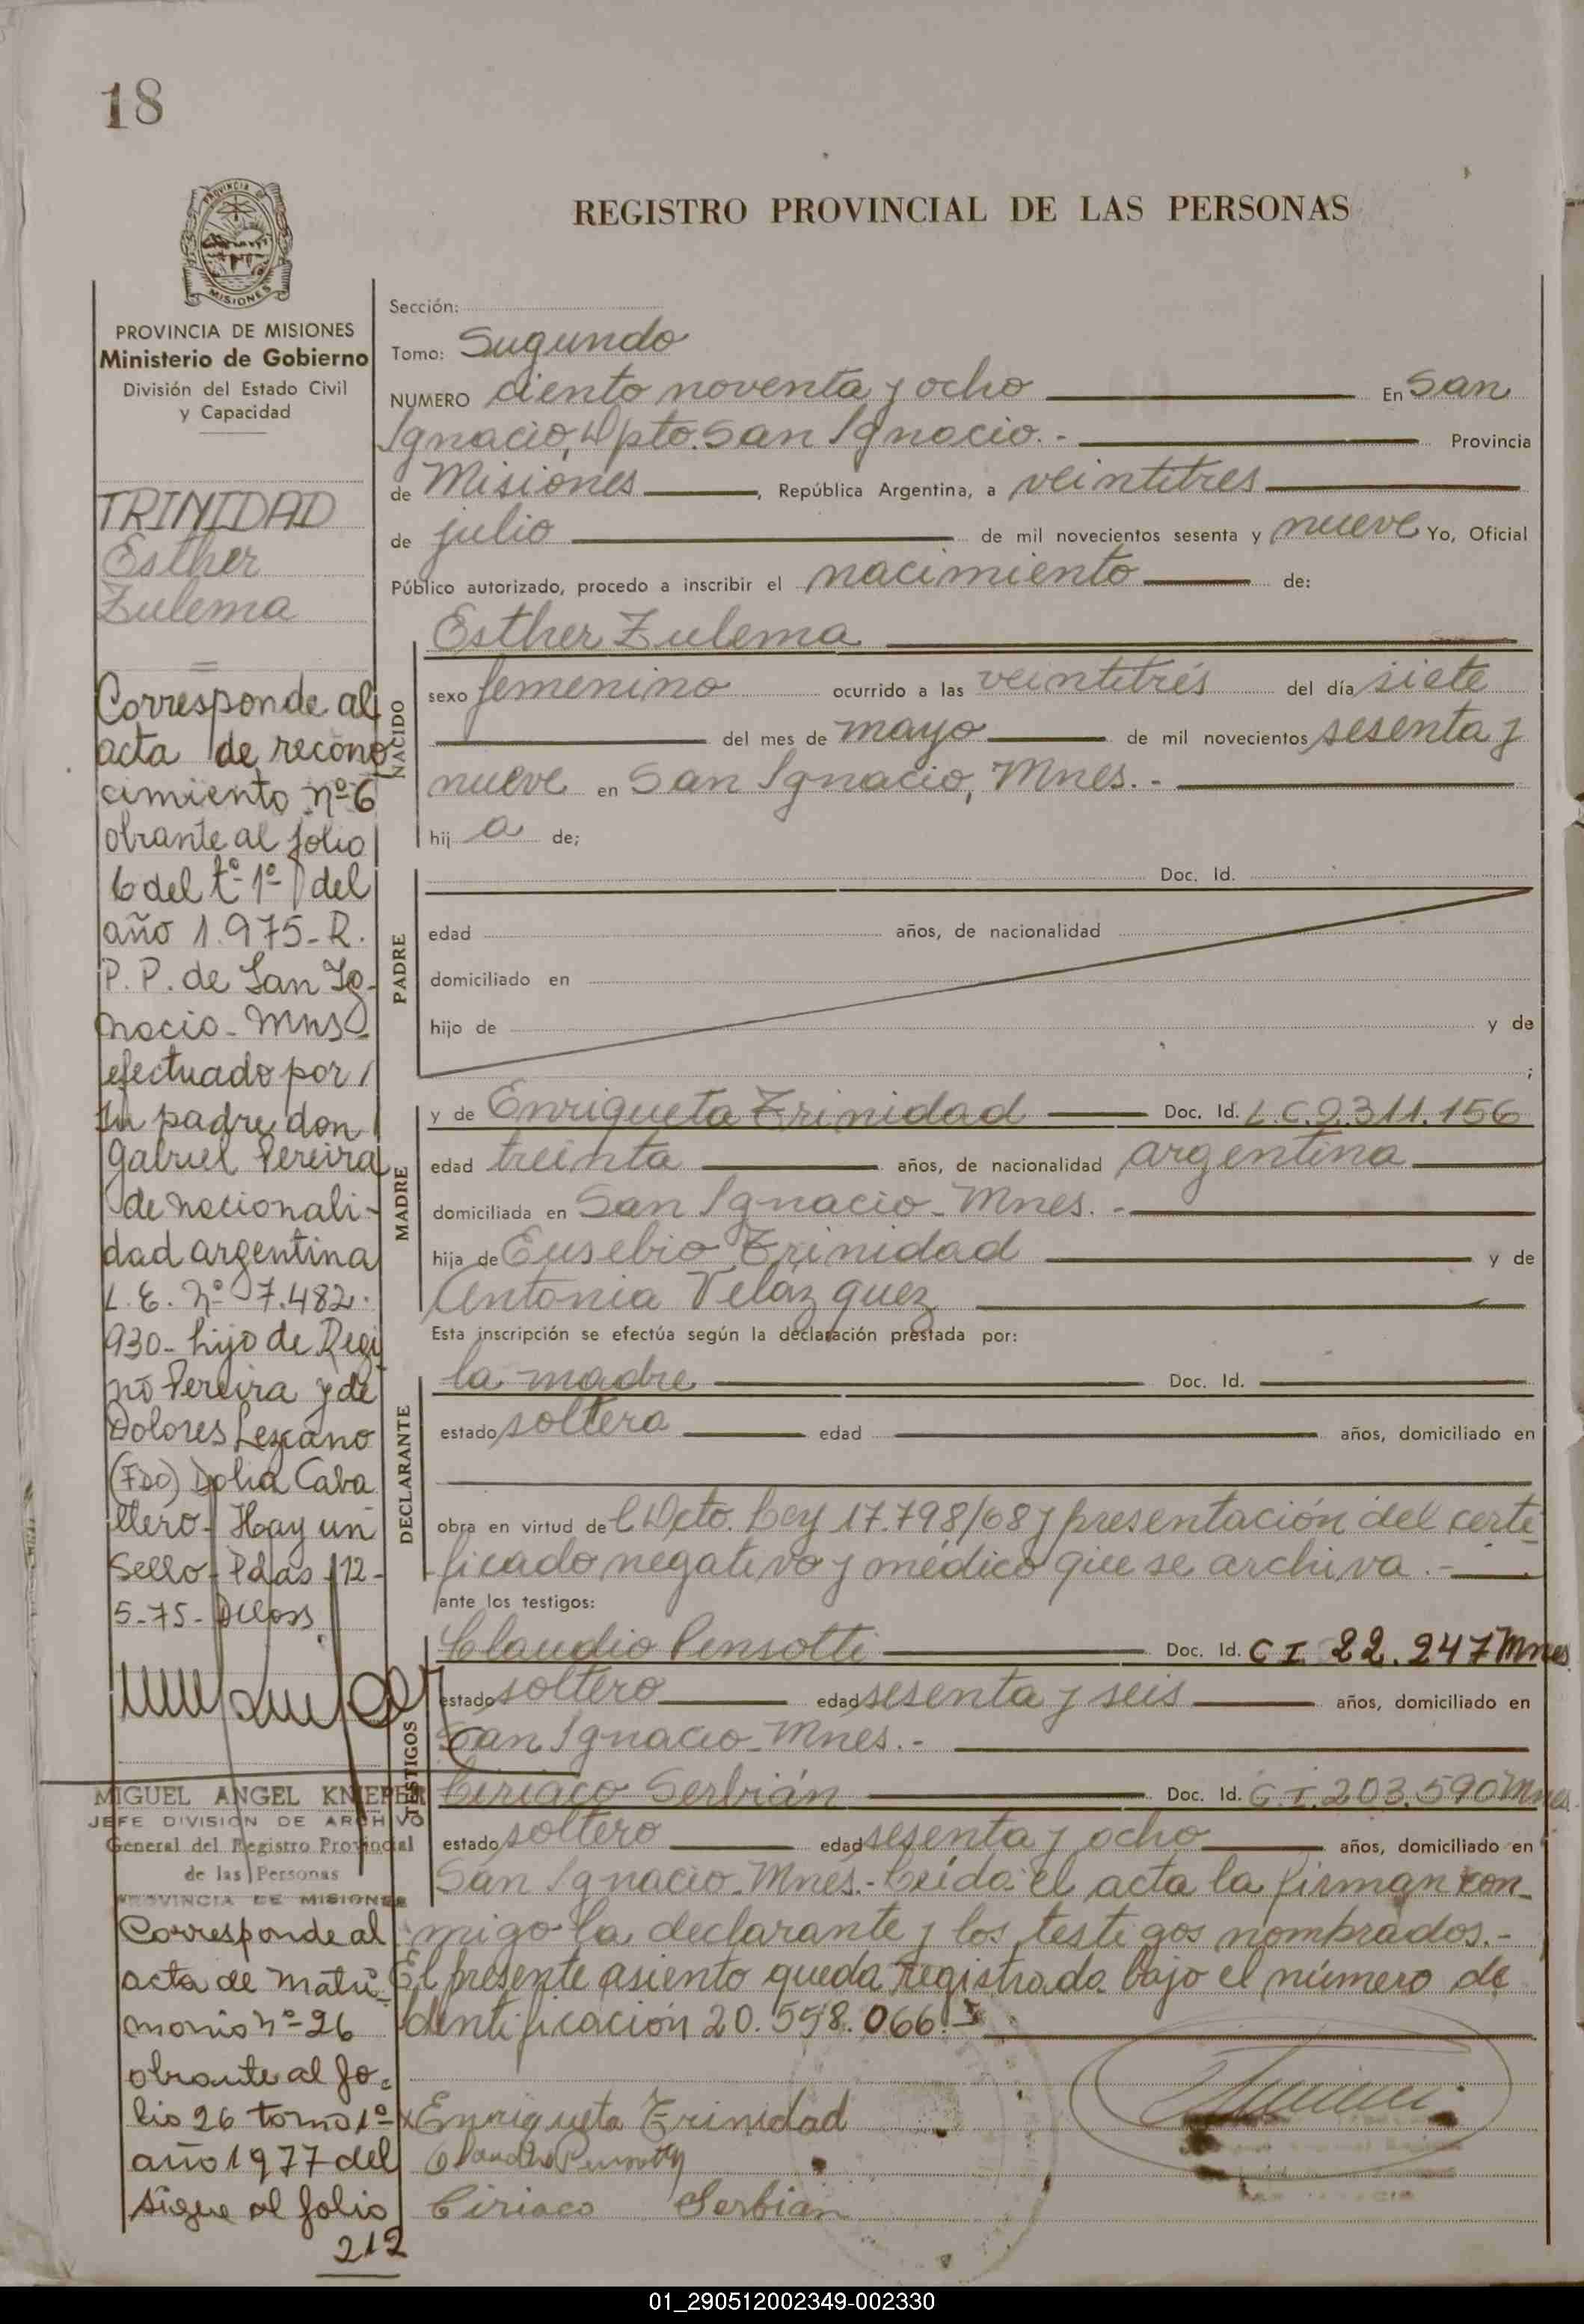 18
PROVINCIA DE MISIONES
Ministerio de Gobierno
División del Estado Civil
y Capacidad
TRINIDAD
Esther
Zulema
Corresponde al
acta de recono
cimiento nº 6
obrante al folio
6 del tº 1º del
año 1.975- R.
P. P. de San Ig-
nacio- Mns-
efectuado por
su padre don
Gabriel Pereira
de nacionali-
dad argentina
L. E. Nº 7.482.
930- hijo de Regi
no Pereira y de
Dolores Lezcano
(Fdo) Delia Caba
llero- Hay un
Sello- Pdas- 12-
5-75-
MIGUEL ANGEL KNIEPER
JEFE DIVISION DE ARCHIVO
General del Registro Provincial
de las Personas
PROVINCIA DE MISIONES
Corresponde al
acta de matri-
monio nº 26
obrante al fo-
lio 26 tomo 1º
año 1977 del
sigue al folio
212
REGISTRO PROVINCIAL DE LAS PERSONAS
Sección:
Tomo: Sugundo
NUMERO ciento noventa y ocho En San
Ignacio, Dpto. San Ignacio.- Provincia
de Misiones, República Argentina, a veintitres
de julio de mil novecientos sesenta y nueve Yo, Oficial
Público autorizado, procedo a inscribir el nacimiento de:
NACIDO
Esther Zulema
sexo femenino ocurrido a las veintitrés del día siete
del mes de mayo de mil novecientos sesenta y
nueve en San Ignacio, Mnes.-
hij a de;
PADRE
Doc. Id.
edad años, de nacionalidad
domiciliado en
hijo de y de
;
MADRE
y de Enriqueta Trinidad Doc. Id. L.C. 2.311.156
edad treinta años, de nacionalidad argentina
domiciliada en San Ignacio- Mnes.-
hija de Eusebio Trinidad y de
Antonia Velázquez
Esta inscripción se efectúa según la declaración prestada por:
DECLARANTE
la madre Doc. Id.
estado soltera edad años, domiciliado en
obra en virtud del Dcto. Ley 17.798/68 y presentación del certi
ficado negativo y médico que se archiva.-
ante los testigos:
TESTIGOS
Claudio Pensotti Doc. Id. C I 22.247 Mnes.
estado soltero edad sesenta y seis años, domiciliado en
San Ignacio- Mnes.-
Ciriaco Serbián Doc. Id. C.I. 203.590 Mnes.
estado soltero edad sesenta y ocho años, domiciliado en
San Ignacio- Mnes.- Leída el acta la firman con-
migo la declarante y los testigos nombrados.-
El presente asiento queda registrado bajo el número de
identificación 20.558.066.-
Enriqueta Trinidad
Ciriaco Serbian
01_290512002349-002330